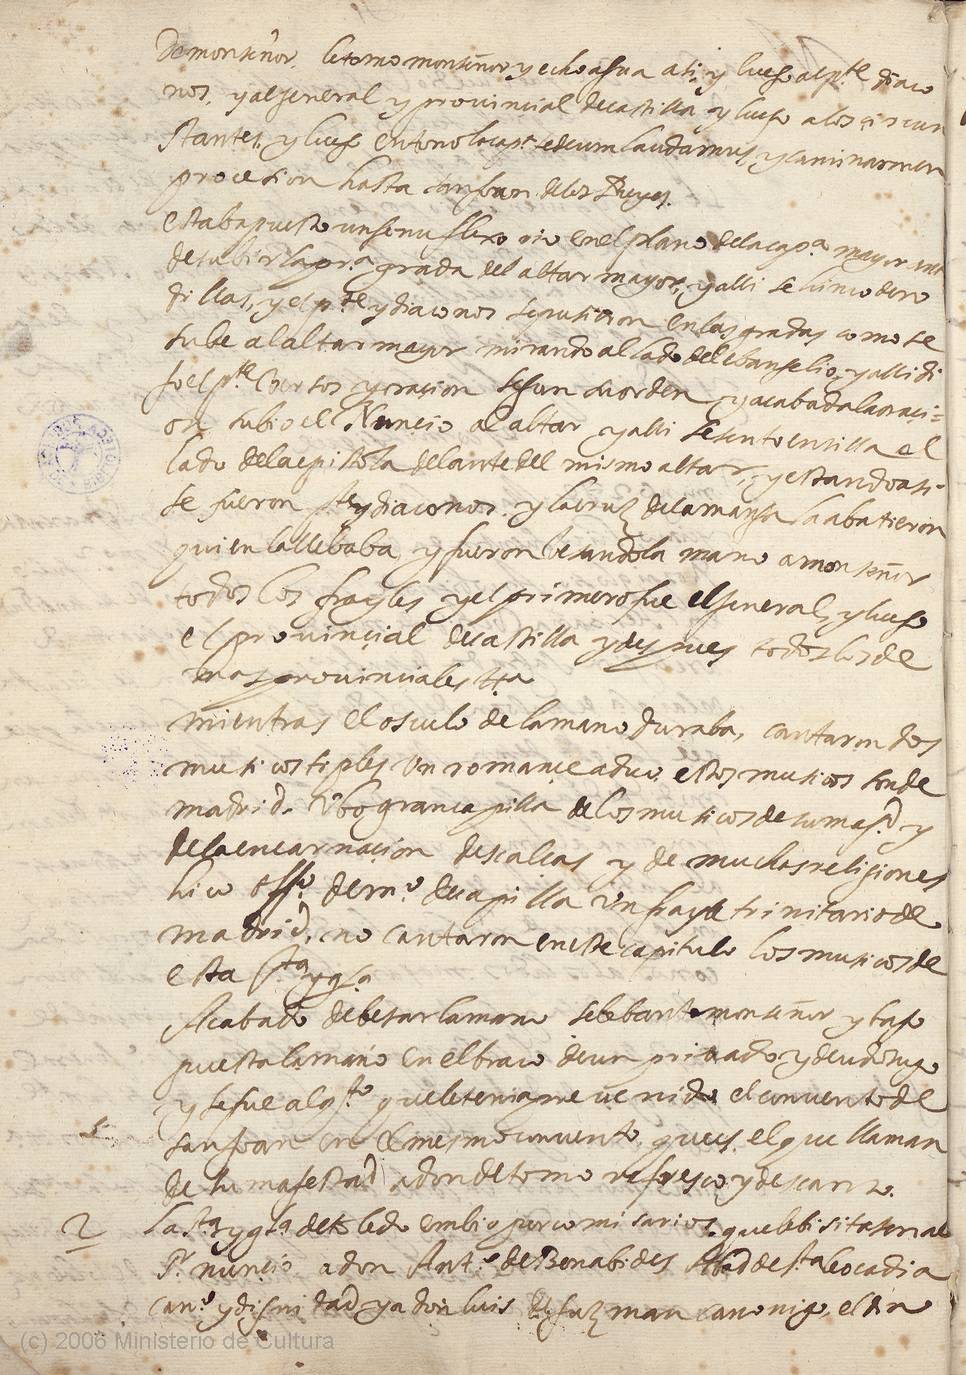 De monseñor. le tomo monseñor y echo agua a ti y luego al pte diaco
nos, y al general y provincial de castilla y luego a los circun
stantes, y luego entono la capa te deum laudamus, y caminaron en
procesion hasta san Juan de los Reyes.
estaba puesto un genuflexo rio en el plano de la capa mayor
de subir la pra grada del altar mayor, y alli se hinco de ro
dillas, y el pte y diaconos en las gradas como se
sube al altar mayor mirando al lado del ebangelio, y alli di
jo el pte versos y oracion segun su orden, y acabada la oraci=
on subio el Nuncio al altar y alli se sento en silla al
lado de la epistola delante del mismo altar, y estando asi
se fueron pte y diaconos. y la cruz de la manga la abatieron
quien la llebaba y fueron besando la mano a monseñor
todos los frayles y el primero fue el general, y luego
el provincial de castilla y despues todos los de
mas provinciales
mientras el osculo de la mano duraba, cantaron dos
musicos tiples un romance a duo, estos musicos son de
madrid. Vbo gran capilla de los musicos de su magd y
de la encarnacion descalcas y de muchos religiones
hico offo de mo de capilla Vn frayle trinitario de
madrid, no cantaron en este capitulo los musicos de
esta sta ygla
Acabado de besar la mano se lebanto monseñor y bajo
puesta la mano en el braco de un privado y deudo suyo
y se fue al qto que le tenia prevenido el convento de
san Joan en el mesmo convento, que es el que llaman
de su magestad adonde tomo refresco y descanso.
2 La sta ygla de toledo embio por comisarios, que lebisitasen al
Sr nuncio a don Anto de Benabides Abad de sta leocadia
cano y dignidad y a don luis de guzman canonigo, el
(c) 2006 Ministerio de Cultura